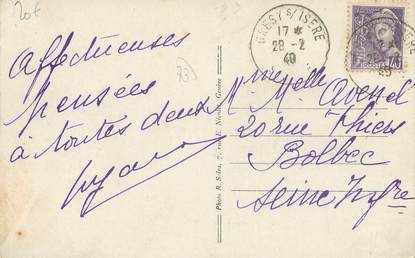 20€
Affectueuses
pensées
à toutes deux
GRESY S/ ISERE
17 *
28-2
40
73
Mme Melle Avenel
20 rue Thiers
Bolbec
Seine Infre
Photo R. Soles, 7, rue E. Nicolet, Genève